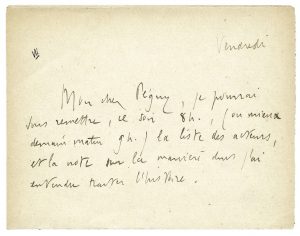 Vendredi
Mon cher Péguy, je pourrai
vous remettre, ce soir 8h., (ou mieux
demain matin 9h.) la liste des acteurs,
et la note sur la manière dont j'ai
entendu traiter l'histoire.